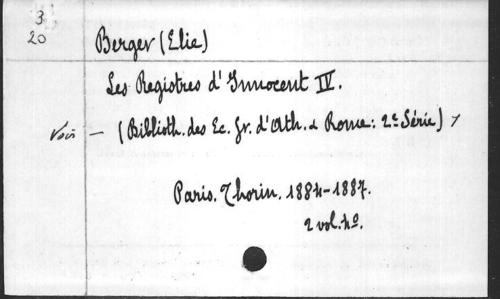 3
20
Berger (Elie)
Les Registres d'Innocent IV.
Voir — (Biblioth. des Ec. fr. d'Ath. & Rome: 2e Série)
Paris. Thorin. 1884-1887.
2 vol. 4o.